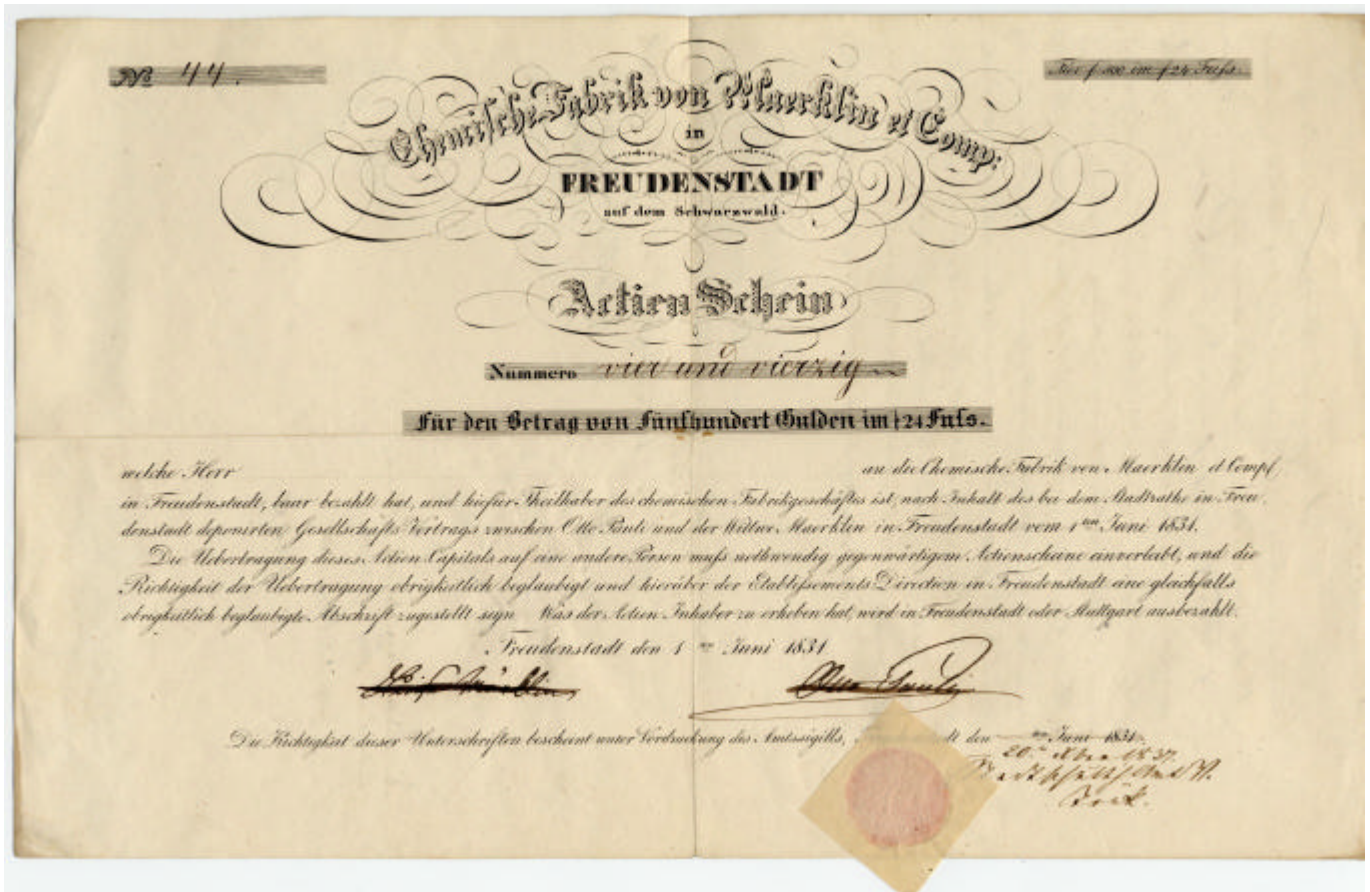 No 44.
Für f 500 im f 24 Fuss.
Chemische Fabrik von Maerklin et Comp:
in
FREUDENSTADT
auf dem Schwarzwald.
Actien Schein
Nummero vier und vierzig
Für den Betrag von Fünfhundert Gulden im f 24 Fuſs.
welche Herr an die Chemische Fabrik von Maerklin et Comp,
in Freudenstadt, baar bezahlt hat, und hiefür Theilhaber des chemischen Fabrikgeschäftes ist, nach Inhalt des bei dem Stadtrathe in Freu,
denstadt deponirten Gesellschafts Vertrags zwischen Otto Pauli und der Wittwe Maerklin in Freudenstadt vom 1ten Juni 1831.
Die Uebertragung dieses Actien Capitals auf eine andere Person muſs nothwendig gegenwärtigem Actienscheine einverleibt, und die
Richtigkeit der Uebertragung obrigkeitlich beglaubigt und hierüber der Etablissements Direction in Freudenstadt eine gleichfalls
obrigkeitlich beglaubigte Abschrift zugestellt seyn. Was der Actien Inhaber zu erheben hat, wird in Freudenstadt oder Stuttgart ausbezahlt.
Freudenstadt den 1ten Juni 1831
Otto Pauli
Die Richtigkeit dieser Unterschriften bescheint unter Vordruckung des Amtssigills, dt den ten Juni 1831.